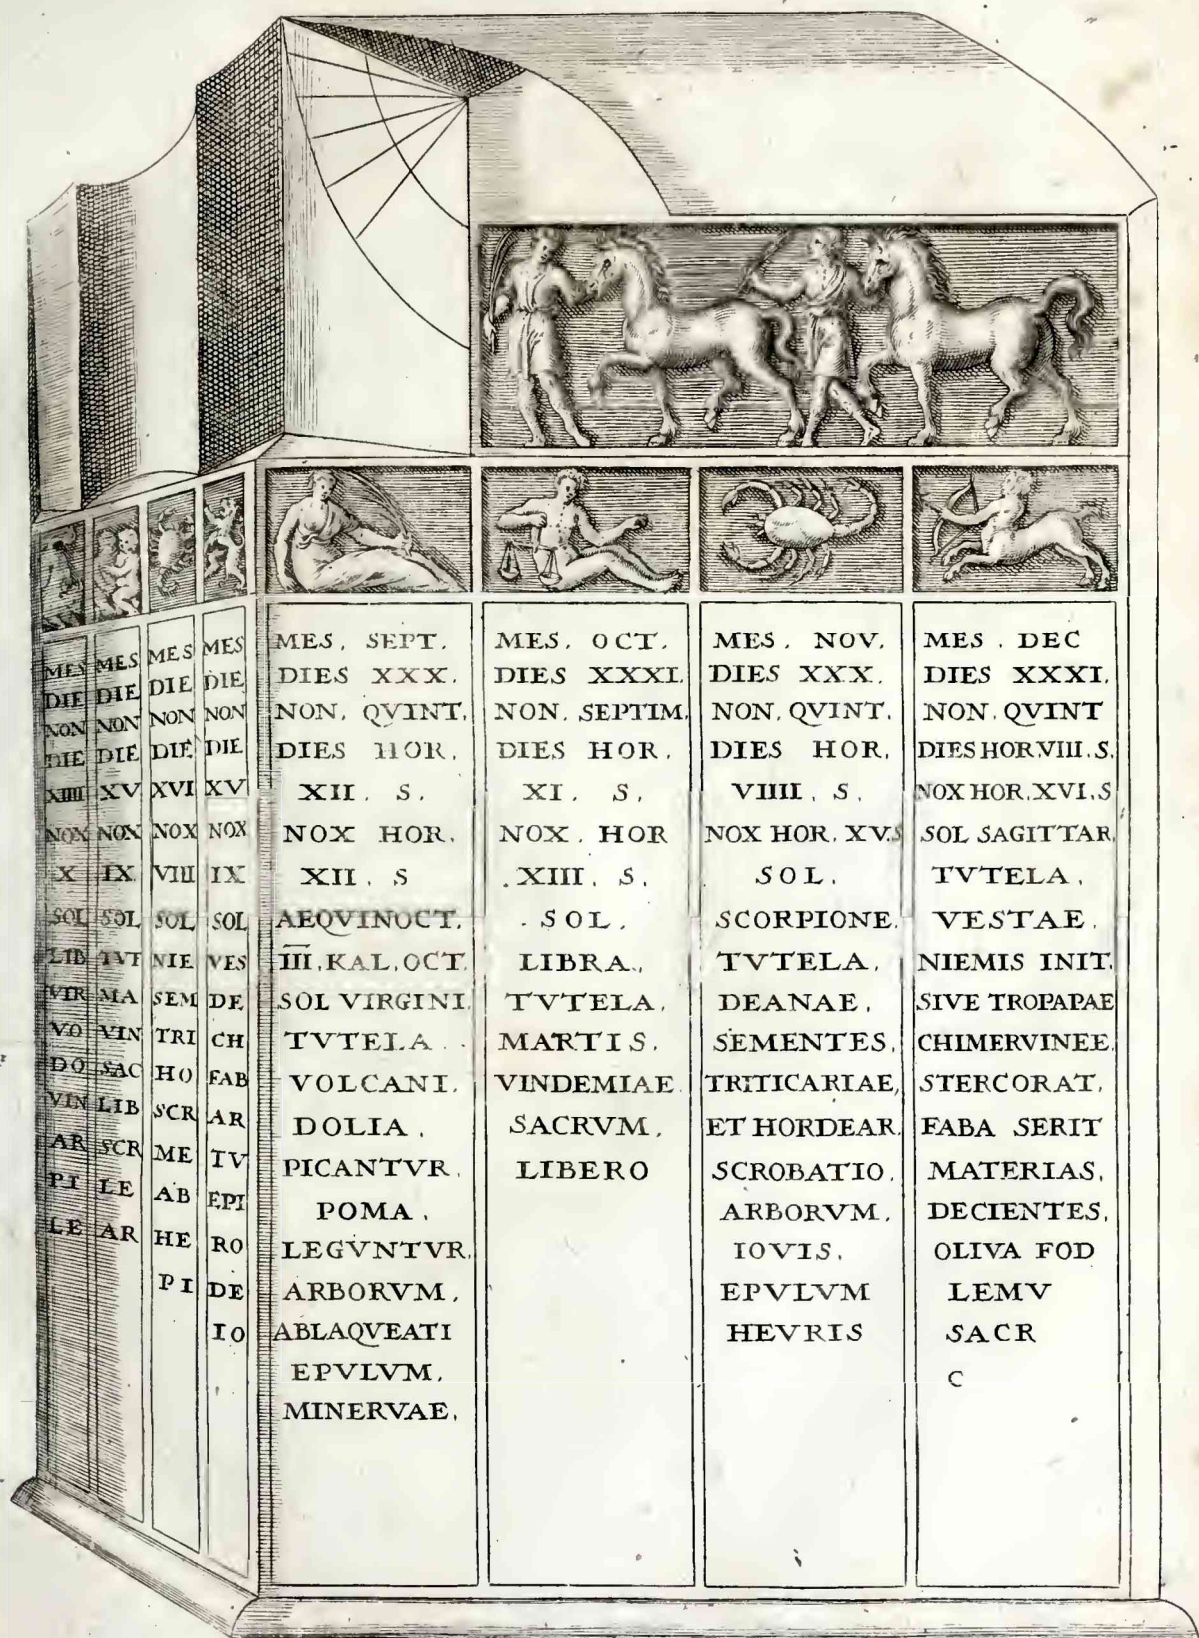 MES
DIE
NON
DIE
XIIII
NOX
X
SOL
LIB
VIR
VO
DO
VIN
AR
PI
LE
MES
DIE
NON
DIE
XV
NOX
IX
SOL
TVT
MA
VIN
SAC
LIB
SCR
LE
AR
MES
DIE
NON
DIE
XVI
NOX
VIII
SOL
NIE
SEM
TRI
HO
SCR
ME
AB
HE
PI
MES
DIE
NON
DIE
XV
NOX
IX
SOL
VES
DE
CH
FAB
AR
IV
EPI
RO
DE
IO
MES, SEPT.
DIES XXX.
NON, QVINT,
DIES HOR,
XII. S.
NOX HOR,
XII. S
AEQVINOCT.
III, KAL, OCT.
SOL VIRGINI.
TVTELA .
VOLCANI.
DOLIA,
PICANTVR,
POMA,
LEGVNTVR,
ARBORVM,
ABLAQVEATI
EPVLVM,
MINERVAE,
MES, OCT.
DIES XXXI.
NON, SEPTIM,
DIES HOR,
XI. S,
NOX. HOR
.XIII, S,
. SOL,
LIBRA.,
TVTELA,
MARTIS.
VINDEMIAE.
SACRVM,
LIBERO
MES, NOV.
DIES XXX.
NON, QVINT.
DIES HOR,
VIIII, S,
NOX HOR. XV.S
SOL.
SCORPIONE.
TVTELA,
DEANAE,
SEMENTES,
TRITICARIAE,
ET HORDEAR.
SCROBATIO,
ARBORVM,
IOVIS.
EPVLVM
HEVRIS
MES . DEC
DIES XXXI,
NON. QVINT
DIES HOR VIII. S.
NOX HOR. XVI. S
SOL SAGITTAR,
TVTELA,
VESTAE.
NIEMIS INIT.
SIVE TROPAPAE
CHIMERVINEE.
STERCORAT,
FABA SERIT
MATERIAS,
DECIENTES,
OLIVA FOD
LEMV
SACR
C